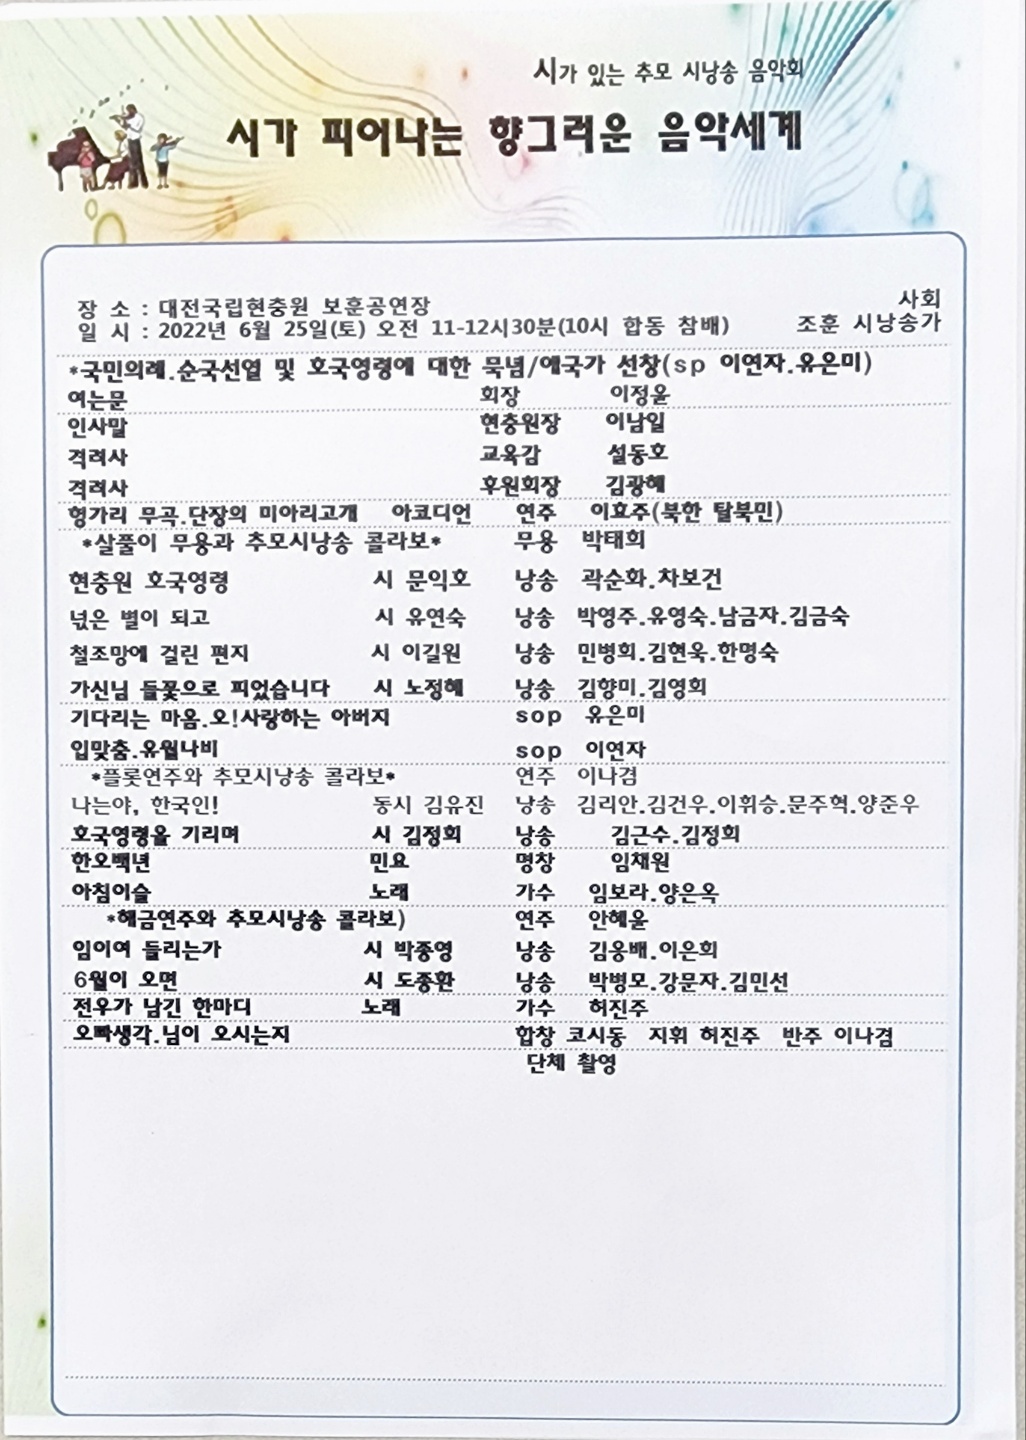 시가 있는 추모 시낭송 음악회
시가 피어나는 향그러운 음악세계
사회
장 소 : 대전국립현충원 보훈공연장
일 시 : 2022년 6월 25일(토) 오전 11-12시30분(10시 합동 참배) 조훈 시낭송가
*국민의례.순국선열 및 호국영령에 대한 묵념/애국가 선창(sp 이연자.유은미)
여는문 회장 이정율
인사말 현충원장 이남일
격려사 교육감 설동호
격려사 후원회장 김광혜
헝가리 무곡.단장의 미아리고개 아코디언 연주 이효주(북한 탈북민)
*살풀이 무용과 추모시낭송 콜라보* 무용 박태희
현충원 호국영령 시 문익호 낭송 곽순화.차보건
넋은 별이 되고 시 유연숙 낭송 박영주.유영숙.남금자.김금숙
철조망에 걸린 편지 시 이길원 낭송 민병회.김현욱.한명숙
가신님 들꽃으로 피었습니다 시 노정혜 낭송 김향미.김영회
기다리는 마음.오!사랑하는 아버지 sop 유은미
입맞춤.유월나비 sop 이연자
*플롯연주와 추모시낭송 콜라보* 연주 이나겸
나는야, 한국인! 동시 김유진 낭송 김리안.김건우.이휘승.문주혁.양준우
호국영령을 기리며 시 김정희 낭송 김근수.김정희
한오백년 민요 명창 임채원
아침이슬 노래 가수 임보라.양은옥
*해금연주와 추모시낭송 콜라보) 연주 안혜율
임이여 들리는가 시 박종영 낭송 김웅배.이은희
6월이 오면 시 도종환 낭송 박병모.강문자.김민선
전우가 남긴 한마디 노래 가수 허진주
오빠생각.님이 오시는지 합창 코시동 지휘 허진주 반주 이나겸
단체 촬영